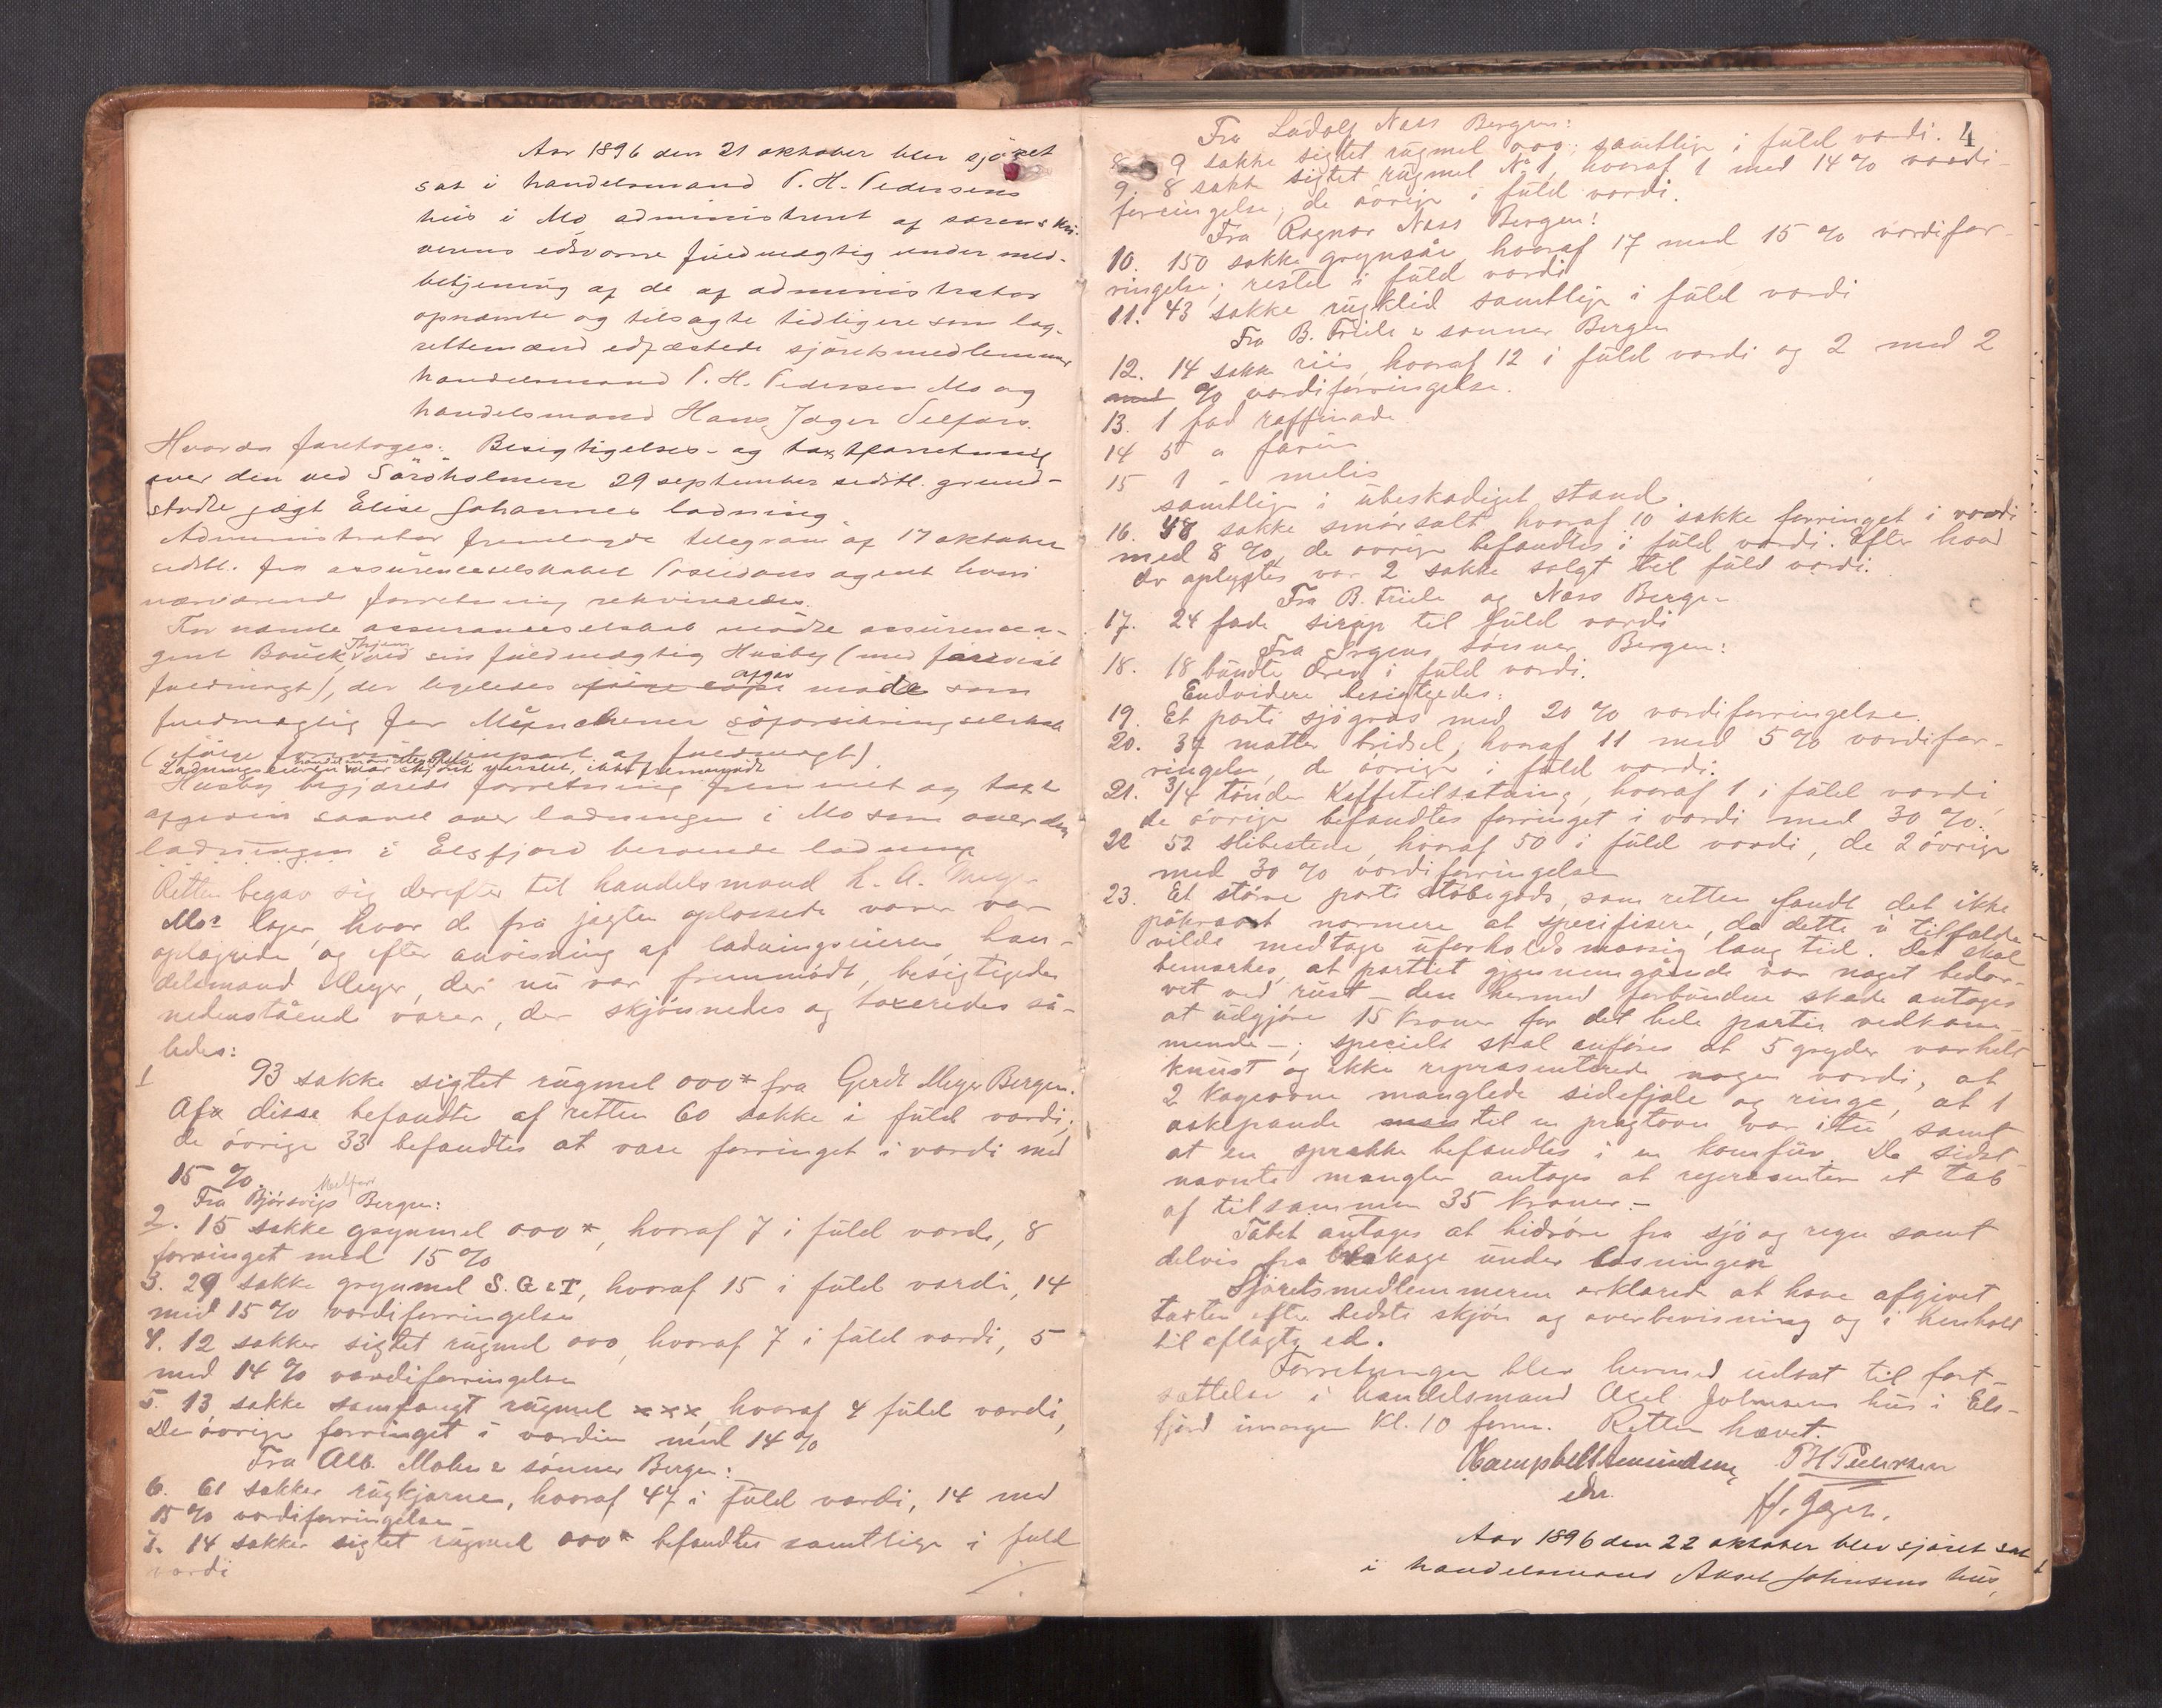 Aar 1896 den 21 oktober blev sjøret
sat i handelsmand P. H. Pedersens
hus i Mo administreret af sorenskri-
verens edsvorne fuldmægtig under med-
betjening af de af administrator
opnævnte og tilsagte tidligere som lag-
rettemænd edfæstede sjøretsmedlemmer
handelsmand P. H. Pedersen Mo og
handelsmand Hans Jager Selfors.
Hvorda foretoges: Besigtigelses- og taxtforretning
over den ved Sørøholmen 29 september sidstl. grund-
stødte jægt Elise Johannes ladning
Administrator fremlagde telegram af 17 oktober
sidstl. fra assuranceselskabet Poseidons agent hvori
nærværende forretning rekvireredes.
For nævnte assuranceselskab mødte assurancea-
gent Bouck, ved sin fuldmægtig Husby (med forevist
fuldmagt), der ligeledes mødte som
fuldmægtig for Münchener søforsikringselskab
Ladningseieren handelsmand Meyer var skjønt varslet, ikke fremmødt
Husby begjærede forretning fremmet og taxt
afgiven saavel over ladningen i Mo som over den
ladningen i Elsfjord beroende ladning
Retten begav sig derefter til handelsmand L. A. Meyer
Mos lager, hvor de fra jagten oplossede varer var
oplagrede og efter anvisning af ladningseieren, han-
delsmand Meyer, der nu var fremmødt, besigtigedes
nedenstående varer, der skjønnedes og taxeredes så-
ledes:
1 93 sække sigtet rúgmel 000* fra Gerdt Meyer Bergen.
Af disse befandtes af retten 60 sække i fúld værdi;
de øvrige 33 befandtes at være forringet i værdi med
15 %.
Fra Bjørsvigs Bergen:
2. 15 sække grynmel 000*, hvoraf 7 i fúld værdi, 8
forringet med 15 %
3. 29 sække grynmel S. G & T, hvoraf 15 i fúld værdi, 14
med 15 % værdiforringelse
4. 12 sække sigtet rúgmel 000, hvoraf 7 i fúld værdi, 5
med 14 % værdiforringelse
5. 13 sække samfængt rúgmel xxx, hvoraf 4 fúld værdi,
De øvrige forringet i værdien med 14 %
Fra Alb. Mohn & sønner Bergen:
6. 61 sække rúgkjærne, hvoraf 47 i fúld værdi, 14 med
15 % værdiforringelse
7. 14 sække sigtet rúgmel 000* befandtes samtlige i fuld
værdi
4
Fra Lúdolf Næss Bergen:
8. 9 sække sigtet rúgmel 000, samtlige i fúld værdi.
9. 8 sække sigtet rúgmel No 1, hvoraf 1 med 14 % værdi-
forringelse, de øvrige i fúld værdi.
Fra Ragnar Næss Bergen:
10. 150 sække grynsåe, hvoraf 17 med 15 % værdifor-
ringelse; resten i fúld værdi
11. 43 sække rúgklid samtlige i fúld værdi
Fra B. Friele & sønner Bergen
12. 14 sække riis, hvoraf 12 i fúld værdi og 2 med 2
med % værdiforringelse.
13. 1 fad raffinade
14 5 " farin
15 1 - melis
samtlige i úbeskadiget stand.
16. 48 sække smørsalt hvoraf 10 sække forringet i værdi
med 8 %, de øvrige befandtes i fúld værdi. Efter hvad
der oplystes var 2 sække solgt til fúld værdi.
Fra B. Friele og Næss Bergen
17. 24 fade sirup til fúld værdi
Fra Irgens sønner Bergen:
18. 18 bundte drev i fúld værdi.
Endvidere besigtigedes:
19. Et parti sjøgræs med 20 % værdiforringelse.
20. 37 matter bridsel, hvoraf 11 med 5 % værdifor-
ringelse, de øvrige i fúld værdi.
21. 3/4 tønder kaffetilsætning, hvoraf 1 i fúld værdi
de øvrige befandtes forringet i værdi med 30 %.
22 52 slibestene, hvoraf 50 i fúld værdi, de 2 øvrige
med 30 % værdiforringelse
23. Et større parti støbegods, som retten fandt det ikke
påkrævet nærmere at specifisere, da dette i tilfælde
vilde medtage úforholdsmæssig lang tid. Det skal
bemærkes, at partiet gjennemgående var noget bedær-
vet ved rúst – den hermed forbúndne skade antages
at údgjøre 15 kroner for det hele partis vedkom-
mende –; specielt skal anføres at 5 gryder var helt
knúst og ikke repræsenterede nogen værdi, at
2 kogeovne manglede sidefjæle og ringe, at 1
askepande til en pragtovn var itú samt
at en sprække befandtes i en komfúr. De sidst-
nævnte mangler antages at repræsentere et tab
af tilsammen 35 kroner. –
Tabet antages at hidrøre fra sjø og regn samt
delvis fra brækage únder losningen
Sjøretsmedlemmerne erklæred at have afgivet
taxten efter bedste skjøn og overbevisning og i henhold
til aflagte ed.
Forretningen blev hermed udsat til fort-
sættelse i handelsmand Axel Johnsens hús i Els-
fjord imorgen kl. 10 form. Retten hævet.
Campbell Amundsen PH Pedersen
edsv. H. Jager.
Aar 1896 den 22 oktober blev sjøret sat
i handelsmand Aksel Johnsens hus,